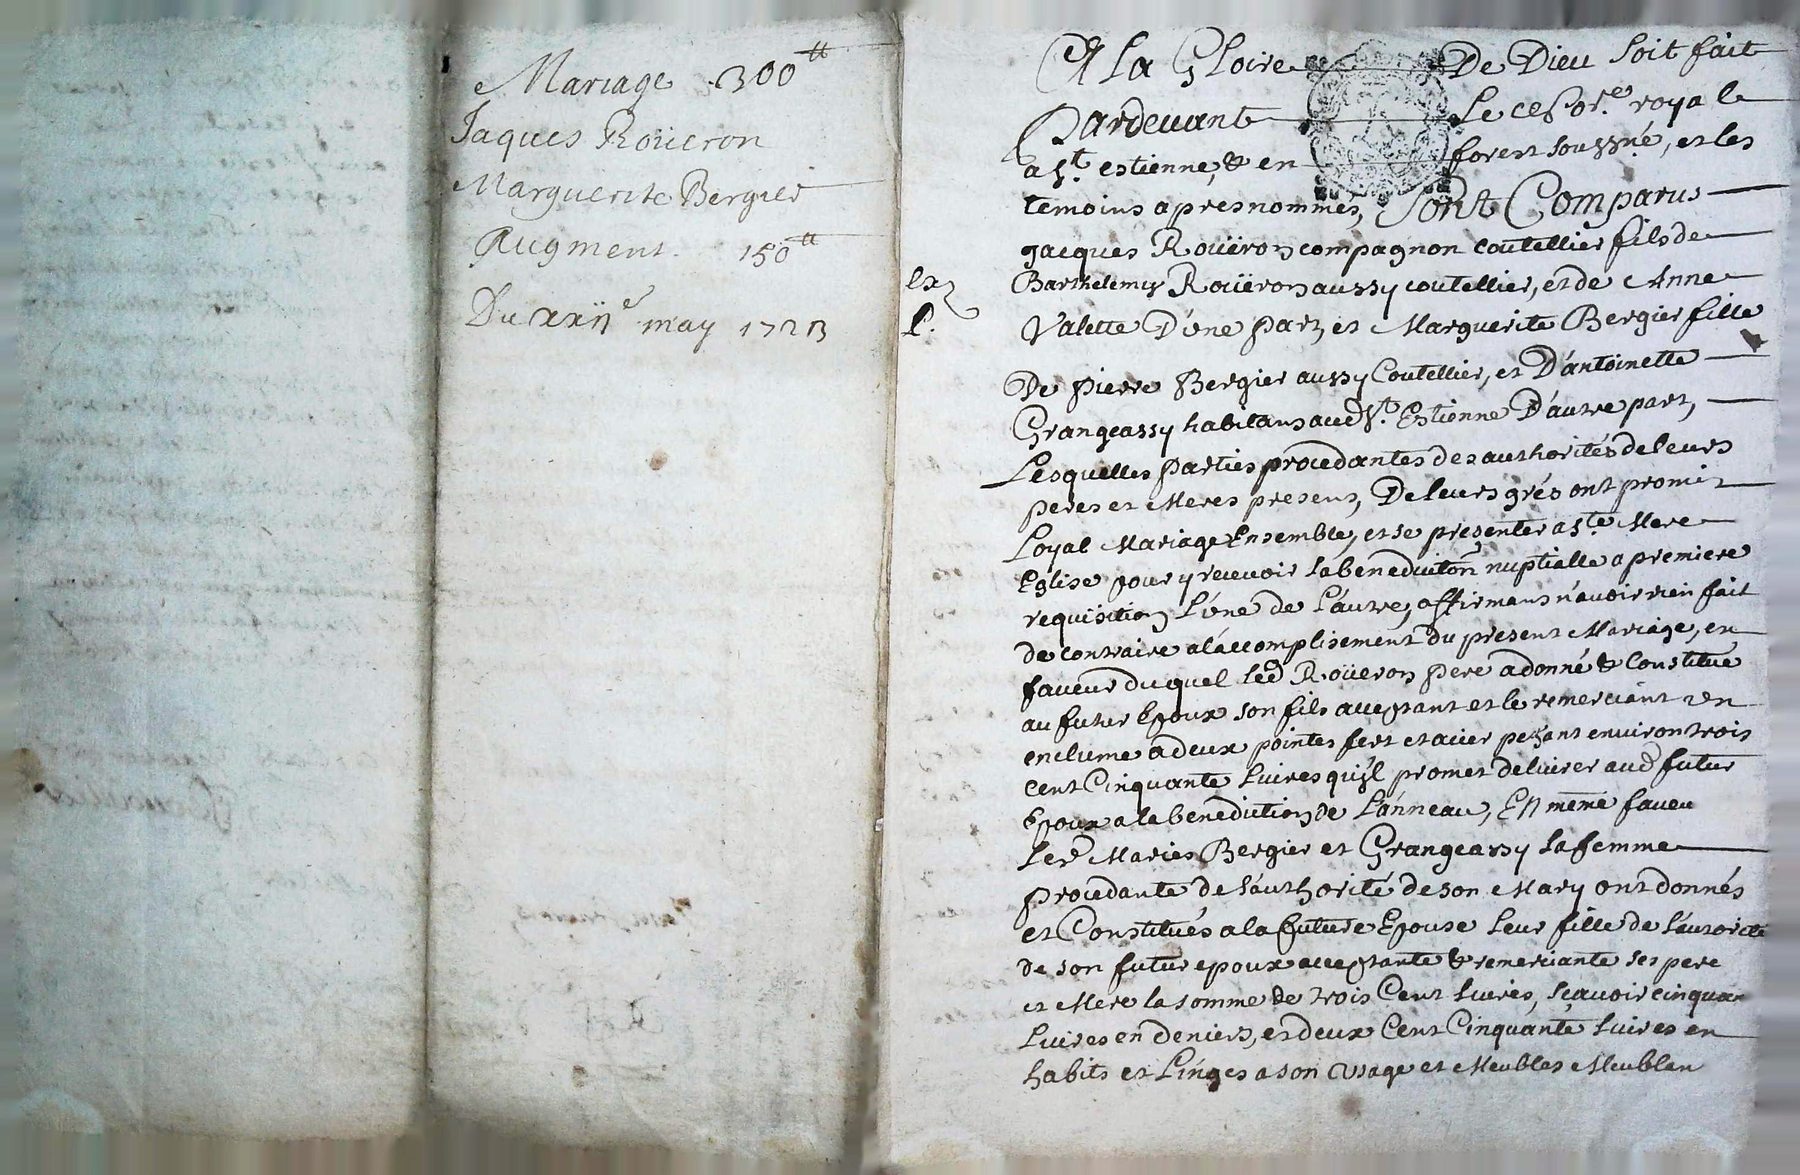 Mariage 300 ₶
Jaques Roüeron
Marguerite Bergier
Augment. 150 ₶
Du xxij e may 1723
ex
P.
A La Gloire De Dieu Soit fait
Pardevant Le no.re royal
a S.t estienne, & en forest soussné, et les
temoins apres nommés, Sont Comparus
Jacques Roüeron compagnon coutellier fils de
Barthelemy Roüeron aussy coutellier, et de Anne
Valette D'vne part, et Marguerite Bergier fille
De pierre Bergier aussy Coutellier, et D'antoinette
Grangeassy habitans aud S.t Estienne D'autre part,
Lesquelles parties procedantes des authorités de leurs
peres et Meres presens, De leurs grés ont promis
Loyal Mariage Ensemble, et se presenter a S.te Mere
Eglise pour y recevoir la benediction nuptialle a premiere
requisition L'vne de L'autre, affirmans n'avoir rien fait
de contraire a l'accomplisement du present Mariage, en
faveur duquel led Roüeron pere a donné & Constitué
au futur Epoux son fils acceptant et le remerciant vn
enclume a deux pointes fert et acier pezant environ trois
cent Cinquante Livres qu'jl promet delivrer aud futur
Epoux a la benediction de L'anneau, En méme faveu
les d Mariés Bergier et Grangeassy la femme
procedante de l'authorité de son Mary ont donnés
et Constitués a la future Epouse leur fille de l'autorité
de son futur epoux acceptante & remerciante ses pere
et Mere la somme de trois Cent Livres, sçavoir cinquan
Livres en deniers, et deux Cent Cinquante Livres en
habits et Linges a son vsage et Meubles Meublan